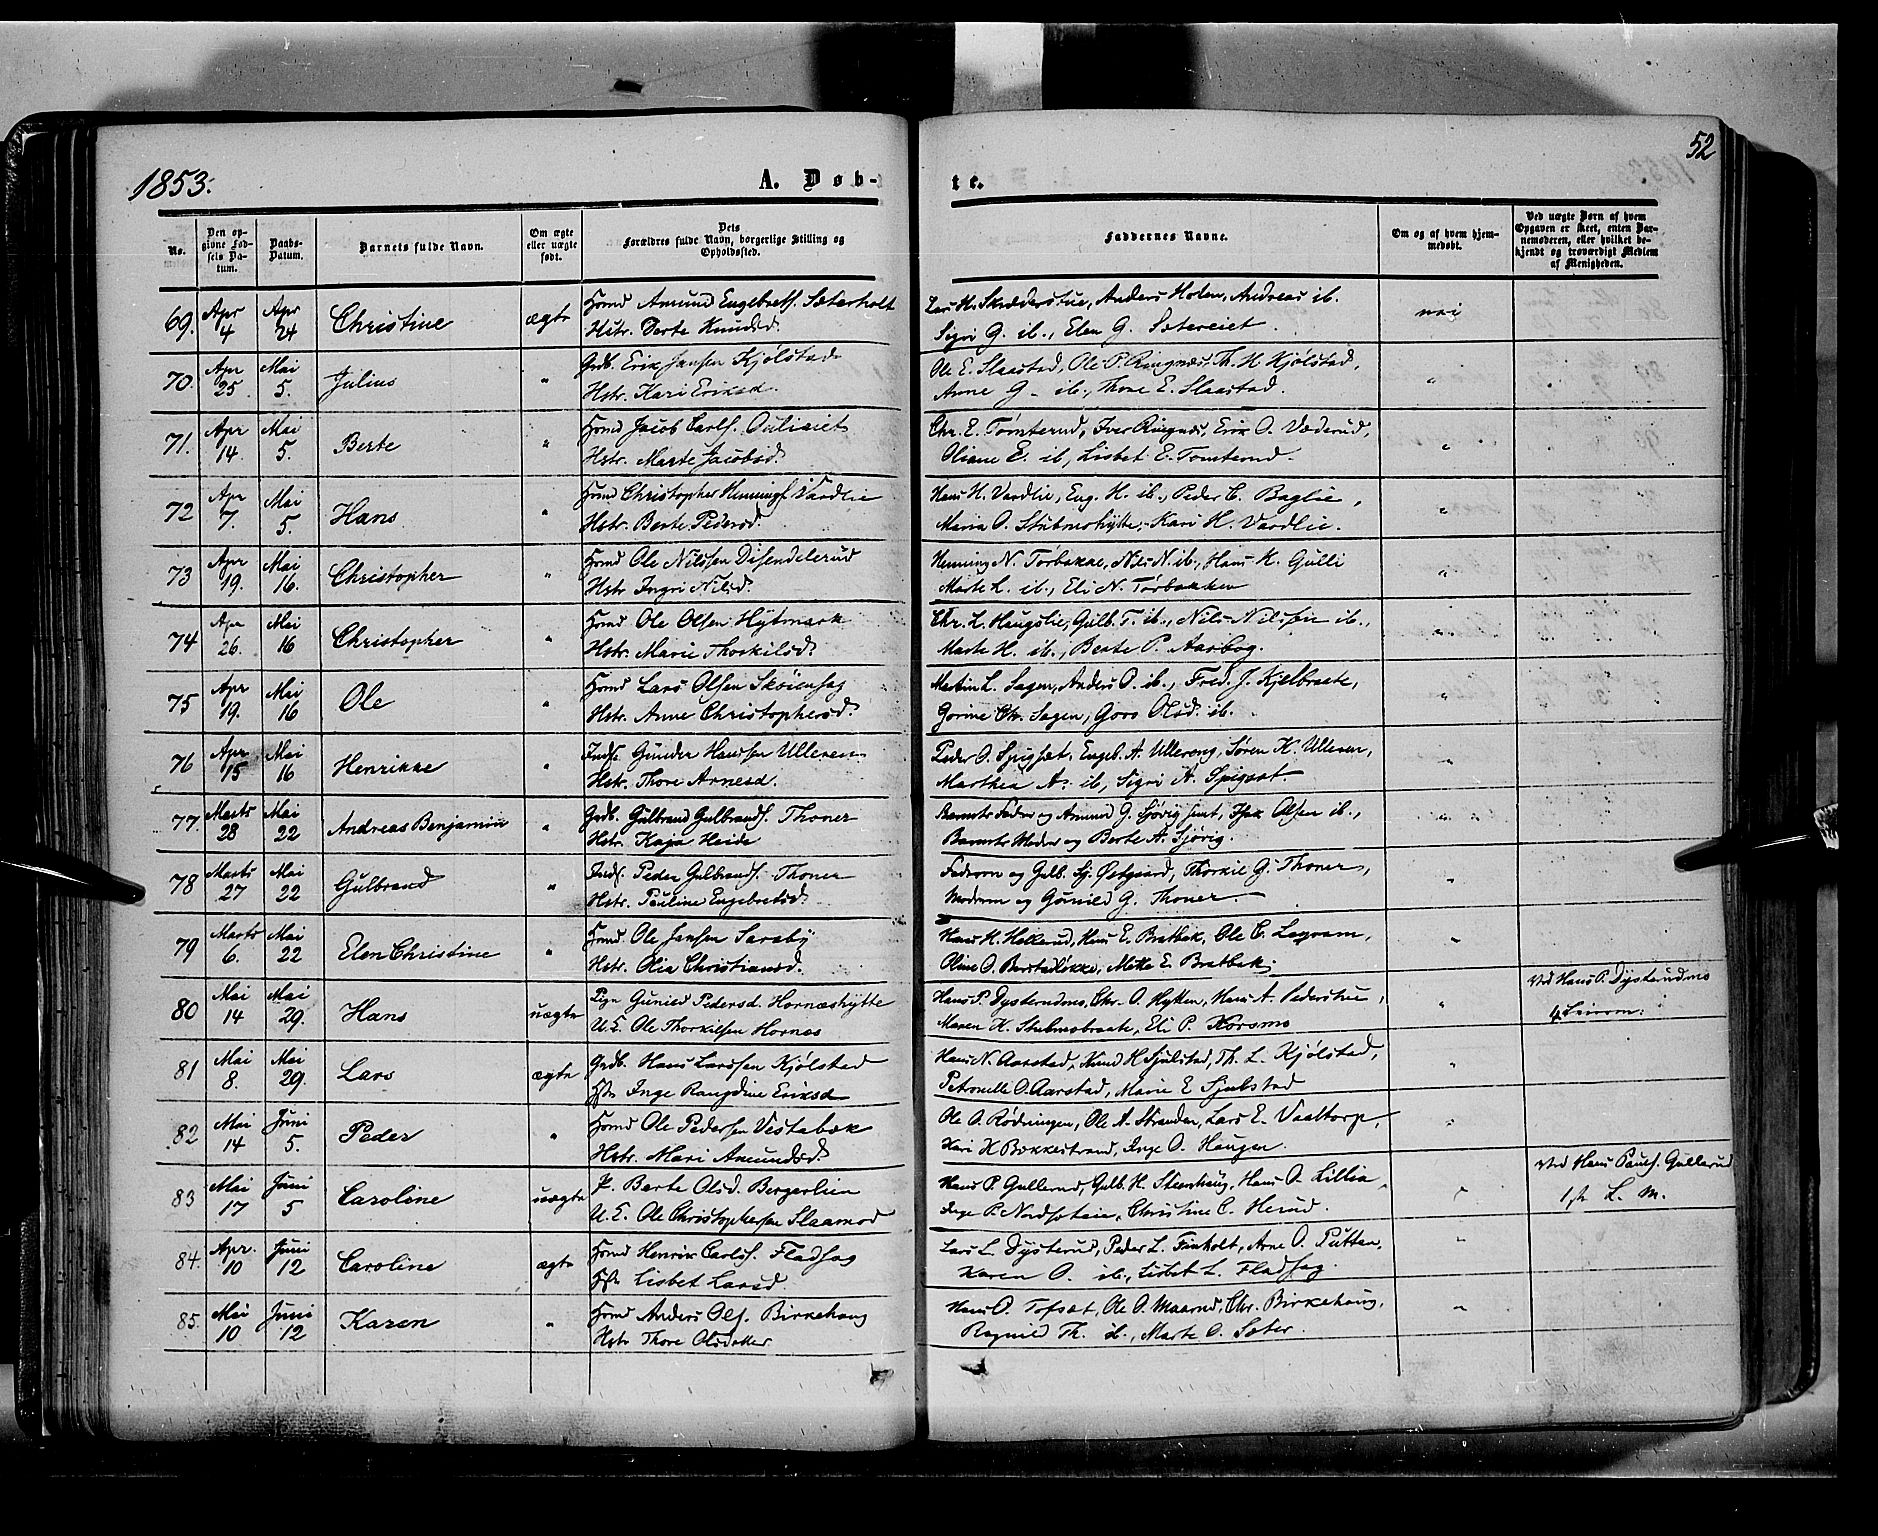 52
1853.
A. Døb-
te.
No.
Den opgivne Fødsels Datum.
Daabs-Datum.
Barnets fulde Navn.
Om ægte eller uægte født.
Dets Forældres fulde Navn, borgerlige Stilling og Opholdssted.
Faddernes Navne.
Om og af hvem hjemmedøbt.
Ved uægte Børn af hvem Opgaven er skeet, enten Barnemoderen, eller hvilket bekjendt og troværdigt Medlem af Menigheden.
69. Apr 4 Apr 24 Christine ægte Hmd Amund Engebrets. Sæterholt
Hstr. Berte Knudsd.
Lars H. Skrædderstue, Anders Holen, Andreas ib.
Sigri G. ib., Elen G. Sætereiet.
nei
70. Apr 25 Mai 5. Julius " Grdb. Erik Jansen Kjølstad
Hstr. Kari Eriksd.
Ole E. Slaastad, Ole P. Ringnæs, Th. H. Kjølstad,
Anne G. ib., Thone E. Slaastad.
"
71. Apr 14. Mai 5. Berte " Hmd Jacob Carls.
Hstr. Marte Jacobsd.
Chr. E. Tomterud, Iver Ringnæs, Erik O. Væderud,
Oliane E. ib, Lisbet E. Tomterud.
"
72 Apr 7. Mai 5. Hans " Hmd Christopher Hennings. Vardlie
Hstr. Berte Pedersd.
Hans H. Vardlie, Eng. H. ib., Peder C. Baglie,
Maria O. Stubmohytte, Kari H. Vardlie.
"
73 Apr 19. Mai 16. Christopher " Hmd Ole Nilssen Disendelerud
Hstr Ingri Nilsd.
Henning N. Torbakke, Nils N. ib., Hans K. Gulli
Marte L. ib., Eli N. Torbakken
"
74 Apr 26. Mai 16 Christopher " Hmd Ole Olsen Hytmark
Hstr. Marie Thorkilsd.
Chr. L. Haugslie, Gulb. T. ib., Nils Nilssen ib.,
Marte H. ib., Berte P. Aasbog.
"
75 Apr 19. Mai 16 Ole " Hmd Lars Olsen
Hstr. Anne Christophersd.
Martin L. Sagen, Anders O. ib., Fred. J. Kjelbraate,
Gorine Chr. Sagen, Goro Olsd. ib.
"
76 Apr 15 Mai 16 Henrikke " Inds. Gunder Hansen Ulleren
Hstr. Thore Arnesd.
Peder O. Spigset, Engeb. A. Ullereng, Søren H. Ulleren,
Marthea A. ib, Sigri A. Spigset.
"
77. Marts 28 Mai 22 Andreas Benjamin " Grdb. Gulbrand Gulbrands. Thoner
Hstr. Kaja Heide
Barnets Fader og Amund G. Sjørig samt Isak Olsen ib.,
Barnets Moder og Berte A. Sjørig.
"
78 Marts 27 Mai 22 Gulbrand " Inds. Peder Gulbrands. Thoner
Hstr. Pauline Engebretsd.
Faderen og Gulb. Sj. Østgaard, Thorkil G. Thoner,
Moderen og Gunild G. Thoner.
"
79 Marts 6. Mai 22 Elen Christine " Hmd. Ole Jansen Saraby
Hstr. Olia Christiansd.
Hans H. Hollerud, Hans E. Bratbak, Ole C. Lagram,
Oline O. Børstadløkke, Mette E. Bratbak.
"
80 Mai 14 Mai 29. Hans uægte Pign Gunild Pedersd. Hornæshytte
U. C. Ole Thorkilsen Hornæs
Hans P. Dysterudmo, Chr. O. Hytten, Hans A. Pederstue,
Maren K. Stubmobraate, Eli P. Korsmo
"
Ved Hans P. Dysterudmo
81 Mai 8. Mai 29. Lars ægte Grdb. Hans Larssen Kjølstad
Hstr Inge Rangdine Eriksd
Hans N. Aarstad, Knud H. Sjulstad, Th. L. Kjølstad,
Petronelle O. Aarstad, Marie E. Sjulstad
"
82 Mai 14 Juni 5. Peder " Hmd Ole Pedersen Vestabæk
Hstr. Mari Amundsd.
Ole O. Rødningen, Ole A. Stranden, Lars E. Vaaltorp,
Kari K. Bækkestrand, Inge O. Haugen.
"
83 Mai 17 Juni 5 Caroline uægte P. Berte Olsd. Bergerlien
U. C. Ole Christophersen Slaamod
Hans P. Gullerud, Gulb. H. Steenhaug, Hans O. Lillia,
Inge P. Nordsæteie, Christine C. Herud.
"
Ved Hans Pauls. Gullerud
84. Apr. 10 Juni 12 Caroline ægte Hmd Henrik Carls. Fladhag
Hstr Lisbet Larsd.
Lars L. Dysterud, Peder L. Finholt, Arne O. Putten,
Karen O. ib., Lisbet L. Fladhag.
"
85. Mai 10 Juni 12 Karen " Hmd Anders Ols. Birkehaug
Hstr Thore Olsdatter
Hans O. Tofsæt, Ole O. Maarud, Chr. Birkehaug,
Ragnild Th. ib., Marte O. Sæter.
"